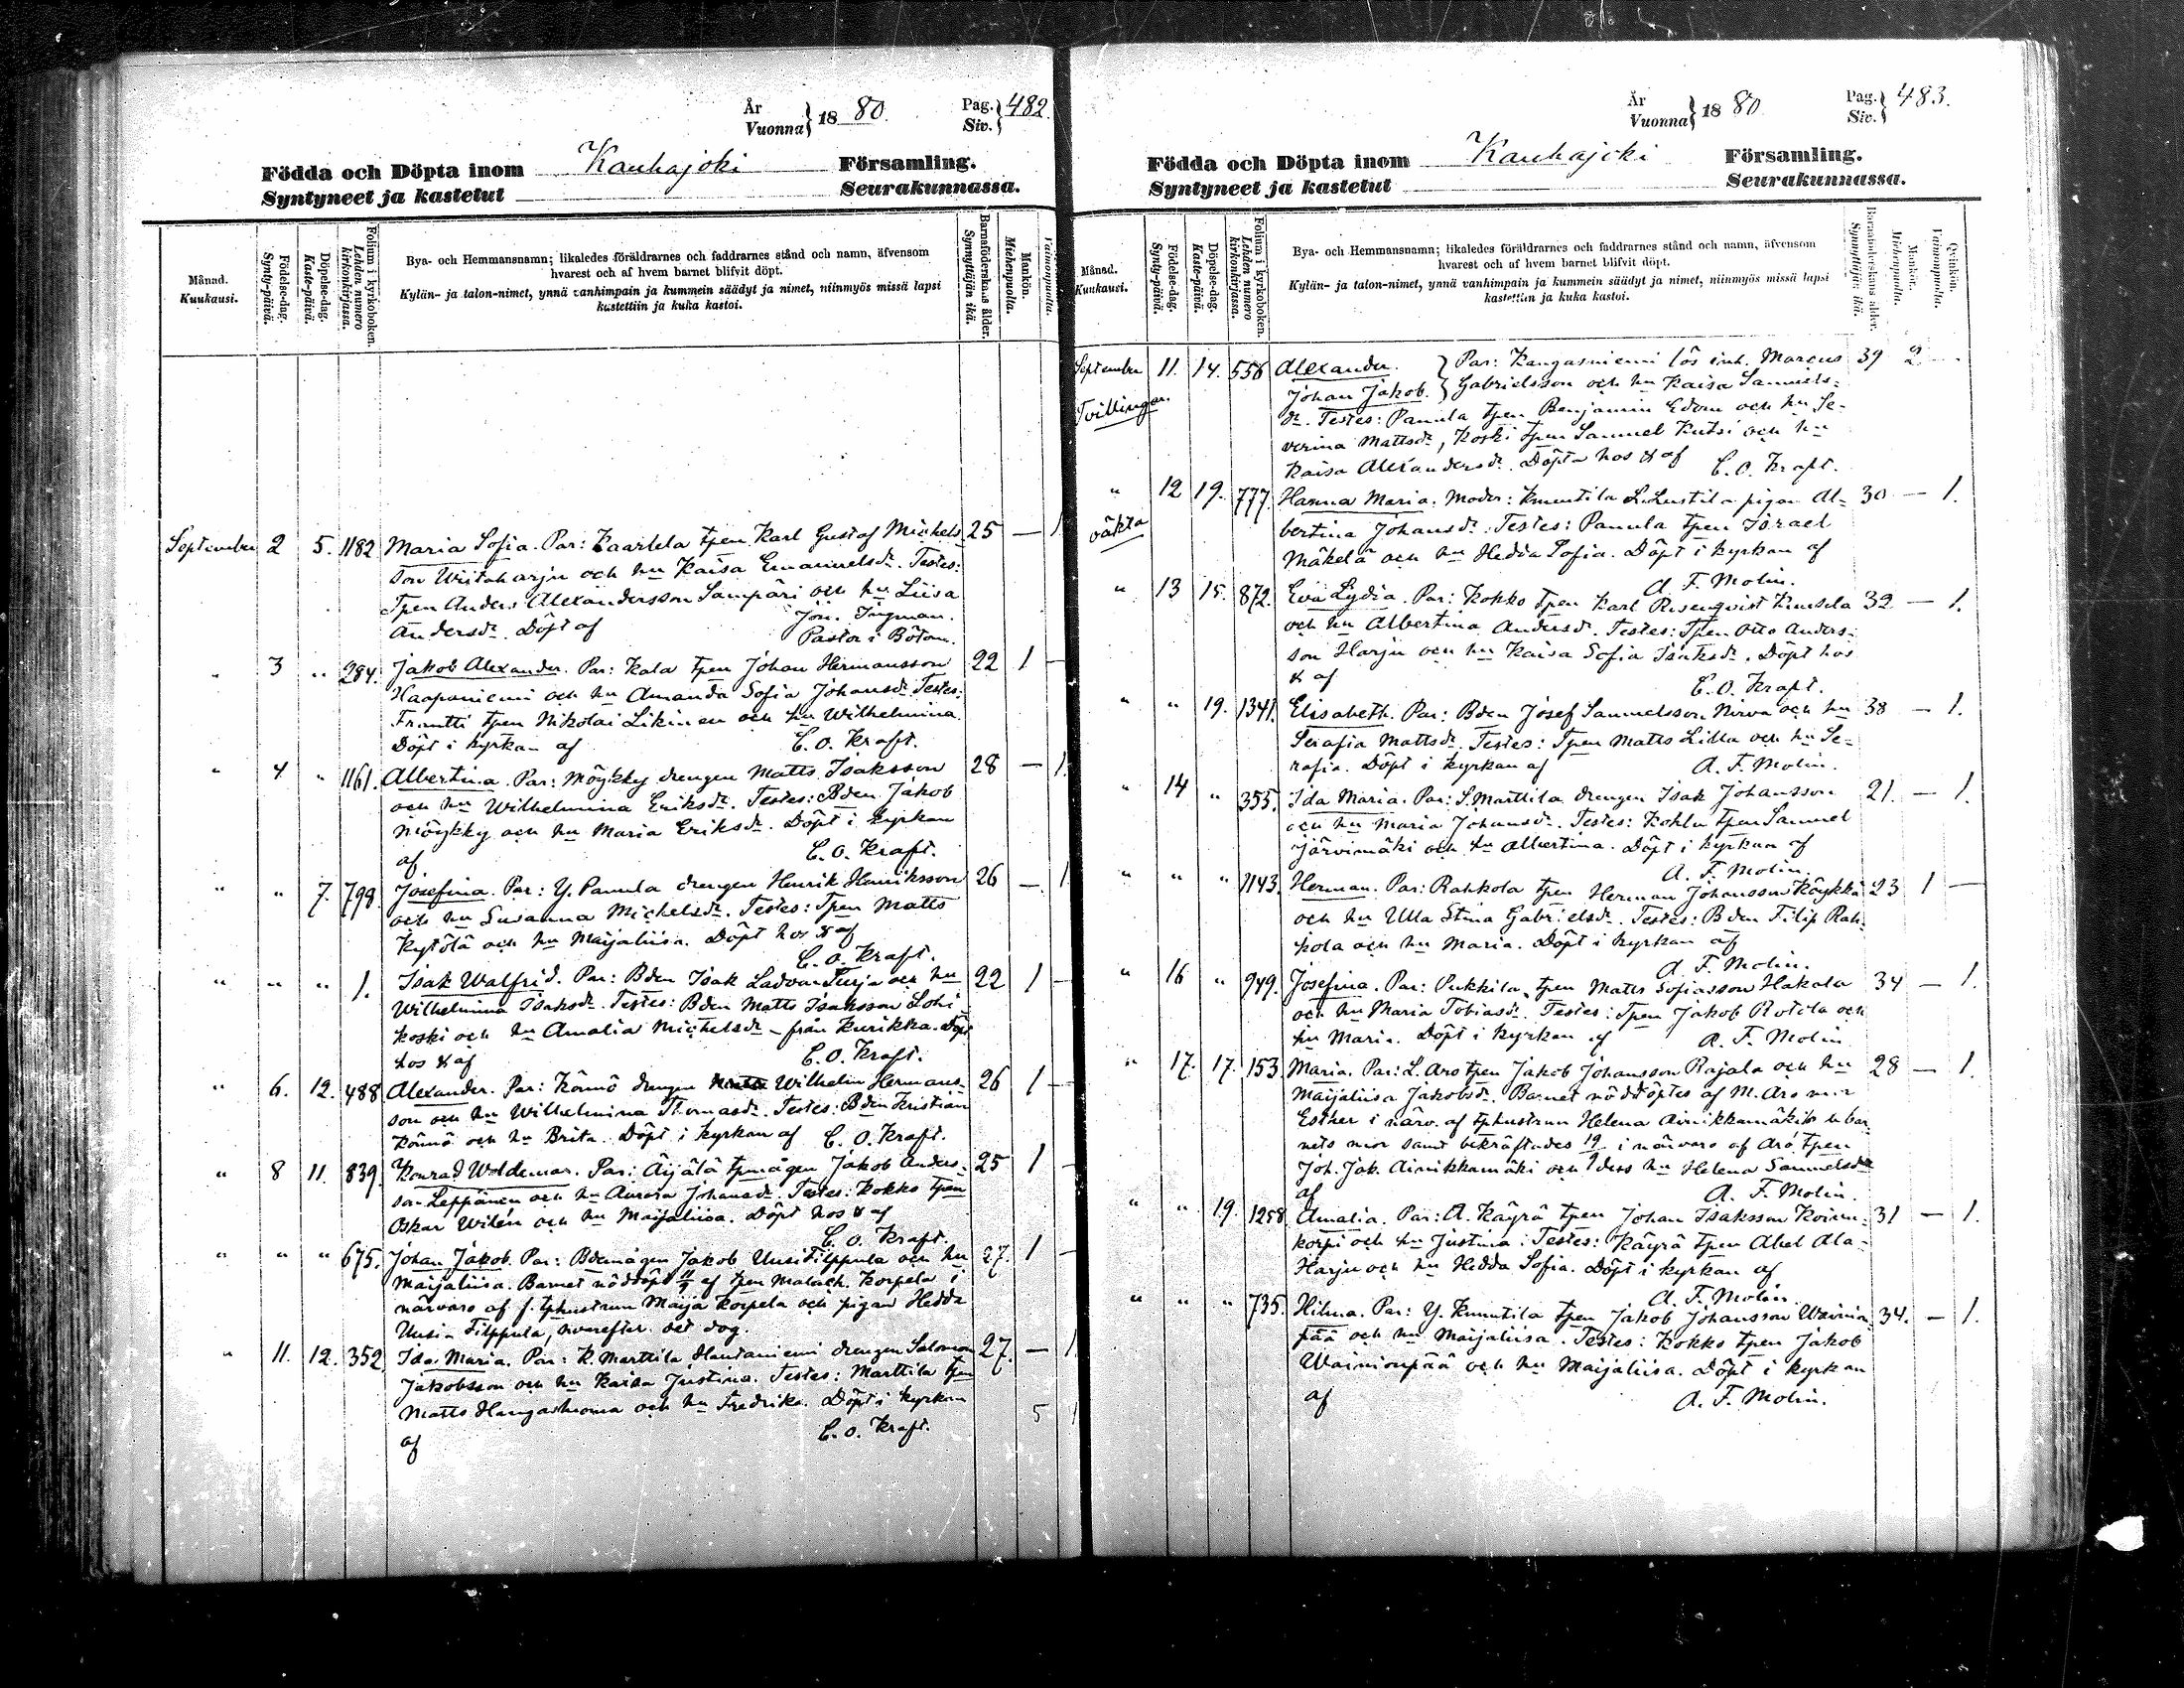 År
Vuonna} 1880. Pag.
Siv.} 482.
Födda och Döpta inom Kauhajoki Församling.
Syntyneet ja kastetut Seurakunnassa.
Månad.
Kuukausi.
Födelse-dag.
Synty-päivä.
Döpelse-dag.
Kaste-päivä.
Folium i kyrkoboken.
Lehden numero
kirkonkirjassa.
Bya- och Hemmansnamn; likaledes föräldrarnes och faddrarnes stånd och namn, äfvensom
hvarest och af hvem barnet blifvit döpt.
Kylän- ja talon-nimet, ynnä vanhimpain ja kummein säädyt ja nimet, niinmyös missä lapsi
kastettiin ja kuka kastoi.
Barnaföderskans ålder.
Synnyttäjän ikä.
Mankön.
Miehenpuolta.
Vaimonpuolta.
September 2 5. 1182 Maria Sofia. Par: Kaartela tpen Karl Gustaf Mickels- 25 — 1
son Wiitaharju och hu Kaisa Emanuelsdr. Testes:
Tpen Anders Alexandersson Sampäri och hu Liisa
Andersdr. Döpt af Joh. Ingman.
Pastor i Bötom.
" 3 " 284. Jakob Alexander. Par: Kala tpen Johan Hermansson 22 1 —
Haapaniemi och hu Amanda Sofia Johansdr. Testes:
Frantti tpen Nikolai Likinen och hu Wilhelmina.
Döpt i kyrkan af C. O. Kraft.
" 4 " 1161. Albertina. Par: Möykky drengen Matts Isaksson 28 — 1.
och hu Wilhelmina Eriksdr. Testes: Bden Jakob
Möykky och hu Maria Eriksdr. Döpt i kyrkan
af C. O. Kraft.
" " 7. 798. Josefina. Par: Y. Panula drengen Henrik Henriksson 26 — 1
och hu Susanna Michelsdr. Testes: Tpen Matts
Kytölä och hu Maijaliisa. Döpt hos & af
C. O. Kraft.
" " " 1. Isak Walfrid. Par: Bden Isak Ladvan Turja och hu 22 1 —
Wilhelmina Isaksdr. Testes: Bden Matts Isaksson Lohi-
koski och hu Amalia Michelsdr — från Kurikka. Döpt
hos & af C. O. Kraft.
" 6. 12. 488 Alexander. Par: Könnö drengen Wilhelm Hermans- 26 1 —
son och hu Wilhelmina Thomasdr. Testes: Bden Kristian
Könnö och hu Brita. Döpt i kyrkan af C. O. Kraft.
" 8 11. 839. Konrad Woldemar. Par: Äijälä tpmågen Jakob Anders- 25 1 —
son Leppänen och hu Aurora Johansdr. Testes: Kokko tpen
Oskar Wilén och hu Maijaliisa. Döpt hos & af
C. O. Kraft.
" " " 675. Johan Jakob. Par: Bdemågen Jakob Uusi Filppula och hu 27. 1 —
Maijaliisa. Barnet nöddöpt 11/9 af tpen Malach. Korpela i
närvaro af f. tphustrun Maija Korpela och pigan Hedda
Uusi-Filppula, hvarefter det dog.
" 11. 12. 352 Ida Maria. Par: K. Marttila Hautaniemi drengen Salomon 27. — 1
Jakobsson och hu Kaisa Justina. Testes: Marttila tpen
Matts Hangashuoma och hu Fredrika. Döpt i kyrkan
af C. O. Kraft.
5
År
Vuonna} 1880. Pag.
Siv.} 483.
Födda och Döpta inom Kauhajoki Församling.
Syntyneet ja kastetut Seurakunnassa.
Månad.
Kuukausi.
Födelse-dag.
Synty-päivä.
Döpelse-dag.
Kaste-päivä.
Folium i kyrkoboken.
Lehden numero
kirkonkirjassa.
Bya- och Hemmansnamn; likaledes föräldrarnes och faddrarnes stånd och namn, äfvensom
hvarest och af hvem barnet blifvit döpt.
Kylän- ja talon-nimet, ynnä vanhimpain ja kummein säädyt ja nimet, niinmyös missä lapsi
kastettiin ja kuka kastoi.
Barnaföderskans ålder.
Synnyttäjän ikä.
Mankön.
Miehenpuolta.
Qvinkön.
Vaimonpuolta.
September 11. 14. 556 Alexander. } Par: Kangasniemi lös inh. Marcus 39 2
Tvillingar. Johan Jakob. } Gabrielsson och hu Kaisa Samuels-
dr. Testes: Panula tpen Benjamin Edom och hu Se-
verina Mattsdr, Koski tpen Samuel Kutsi och hu
Kaisa Alexandersdr. Döpta hos & af C. O. Kraft.
" 12 19. 777. Hanna Maria. Moder: Knuutila L. Lustila pigan Al- 30 — 1.
oäkta bertina Johansdr. Testes: Panula tpen Israel
Mäkelä och hu Hedda Sofia. Döpt i kyrkan af
A. F. Molin.
" 13 15. 872. Eva Lydia. Par: Kokko tpen Karl Rosenqvist Kuusela 32 — 1.
och hu Albertina Andersdr. Testes: Tpen Otto Anders-
son Harju och hu Kaisa Sofia Isaksdr. Döpt hos
& af C. O. Kraft.
" " 19. 1341. Elisabeth. Par: Bden Josef Samuelsson Nirva och hu 38 — 1.
Serafia Mattsdr. Testes: Tpen Matts Lilla och hu Se-
rafia. Döpt i kyrkan af A. F. Molin.
" 14 " 355. Ida Maria. Par: S. Marttila drengen Isak Johansson 21. — 1.
och hu Maria Johansdr. Testes: Kohlu tpen Samuel
Järvimäki och hu Albertina. Döpt i kyrkan af
A. F. Molin.
" " " 1143. Herman. Par: Rahkola tpen Herman Johansson Köykkä 23 1 —
och hu Ulla Stina Gabrielsdr. Testes: Bden Filip Rah-
kola och hu Maria. Döpt i kyrkan af
A. F. Molin.
" 16 " 949. Josefina. Par: Pukkila tpen Matts Sofiasson Hakala 34 — 1.
och hu Maria Tobiasdr. Testes: Tpen Jakob Rotola och
hu Maria. Döpt i kyrkan af A. F. Molin
" 17. 17. 153. Maria. Par: L. Aro tpen Jakob Johansson Rajala och hu 28 — 1.
Maijaliisa Jakobsdr. Barnet nöddöptes af M. Aro mor
Esther i närv. af tphustrun Helena Ainikkamäki & bar-
nets mor samt bekräftades 19/9 i närvaro af Aro tpen
Joh. Jak. Ainikkamäki och dess hu Helena Samuelsdr
af A. F. Molin.
" " 19. 1258 Amalia. Par: A. Käyrä tpen Johan Isaksson Koivu- 31 — 1.
korpi och hu Justina. Testes: Käyrä tpen Abel Ala-
Harju och hu Hedda Sofia. Döpt i kyrkan af
A. F. Molin.
" " " 735. Hilma. Par: Y. Knuutila tpen Jakob Johansson Wainion- 34. — 1.
pää och hu Maijaliisa. Testes: Kokko tpen Jakob
Wainionpää och hu Maijaliisa. Döpt i kyrkan
af A. F. Molin.